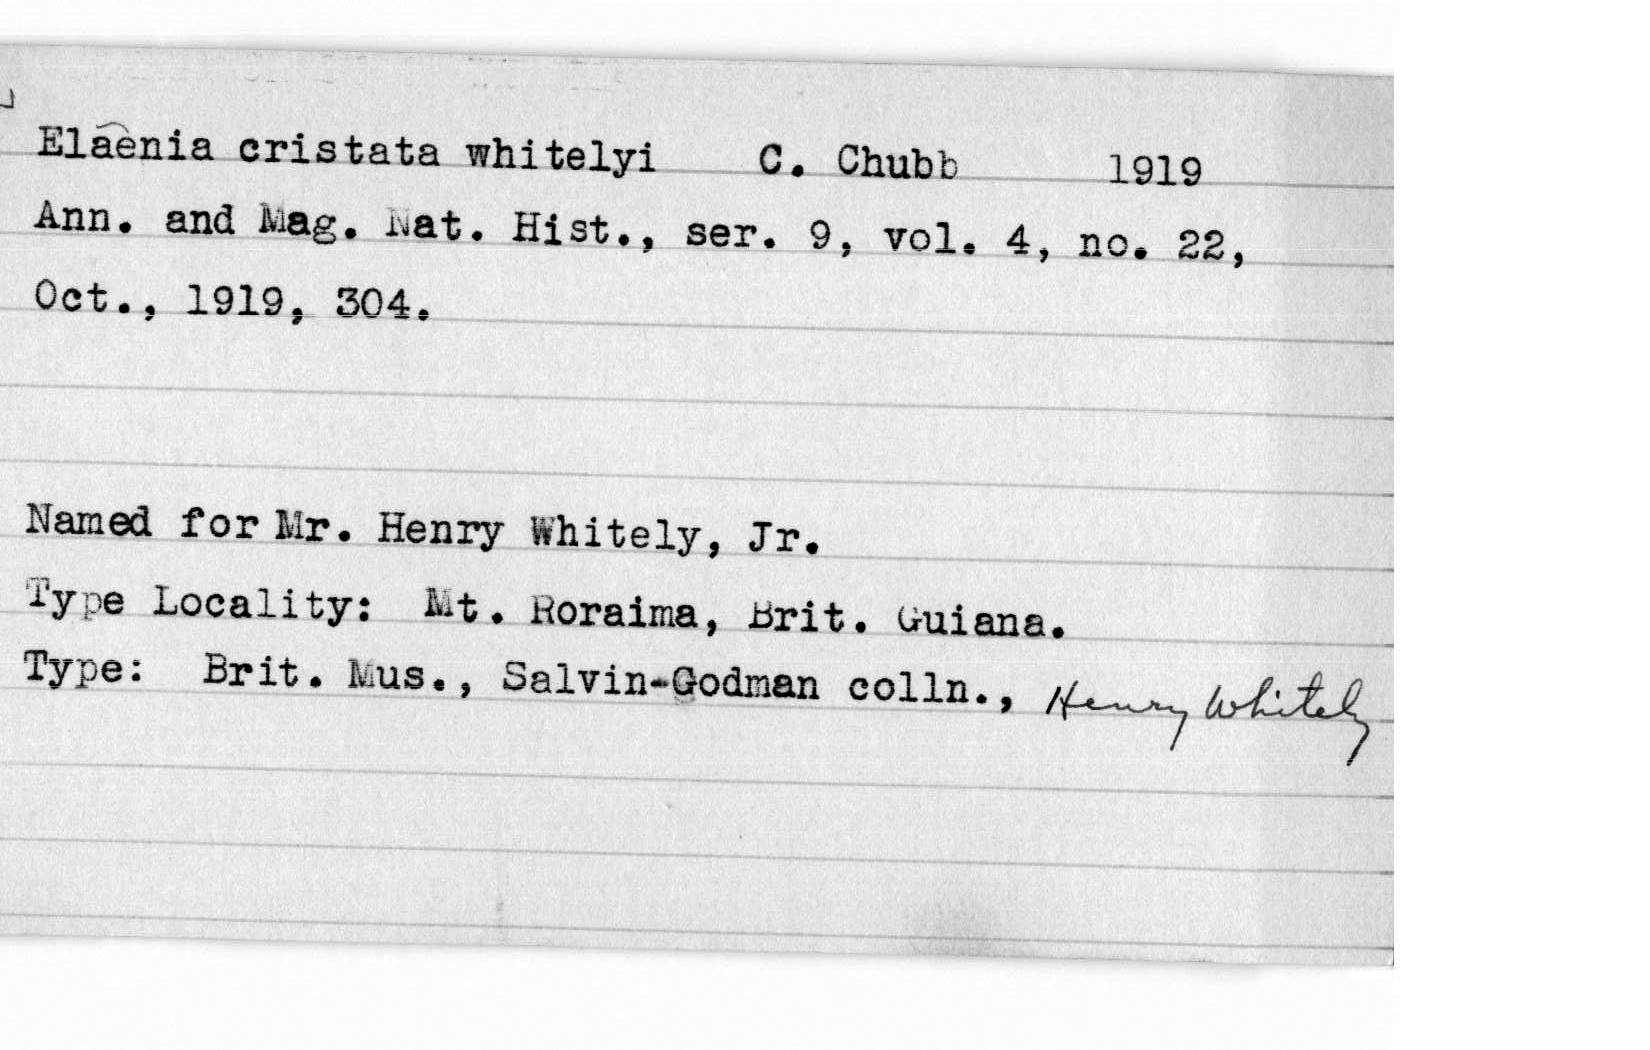 Elaenia cristata whitelyi C. Chubb 1919
Ann. and Mag. Nat. Hist., ser. 9, vol. 4, no. 22,
Oct., 1919, 304.
Named for Mr. Henry Whitely, Jr.
Type Locality: Mt. Roraima, Brit. Guiana.
Type: Brit. Mus., Salvin-Godman colln., Henry Whitely